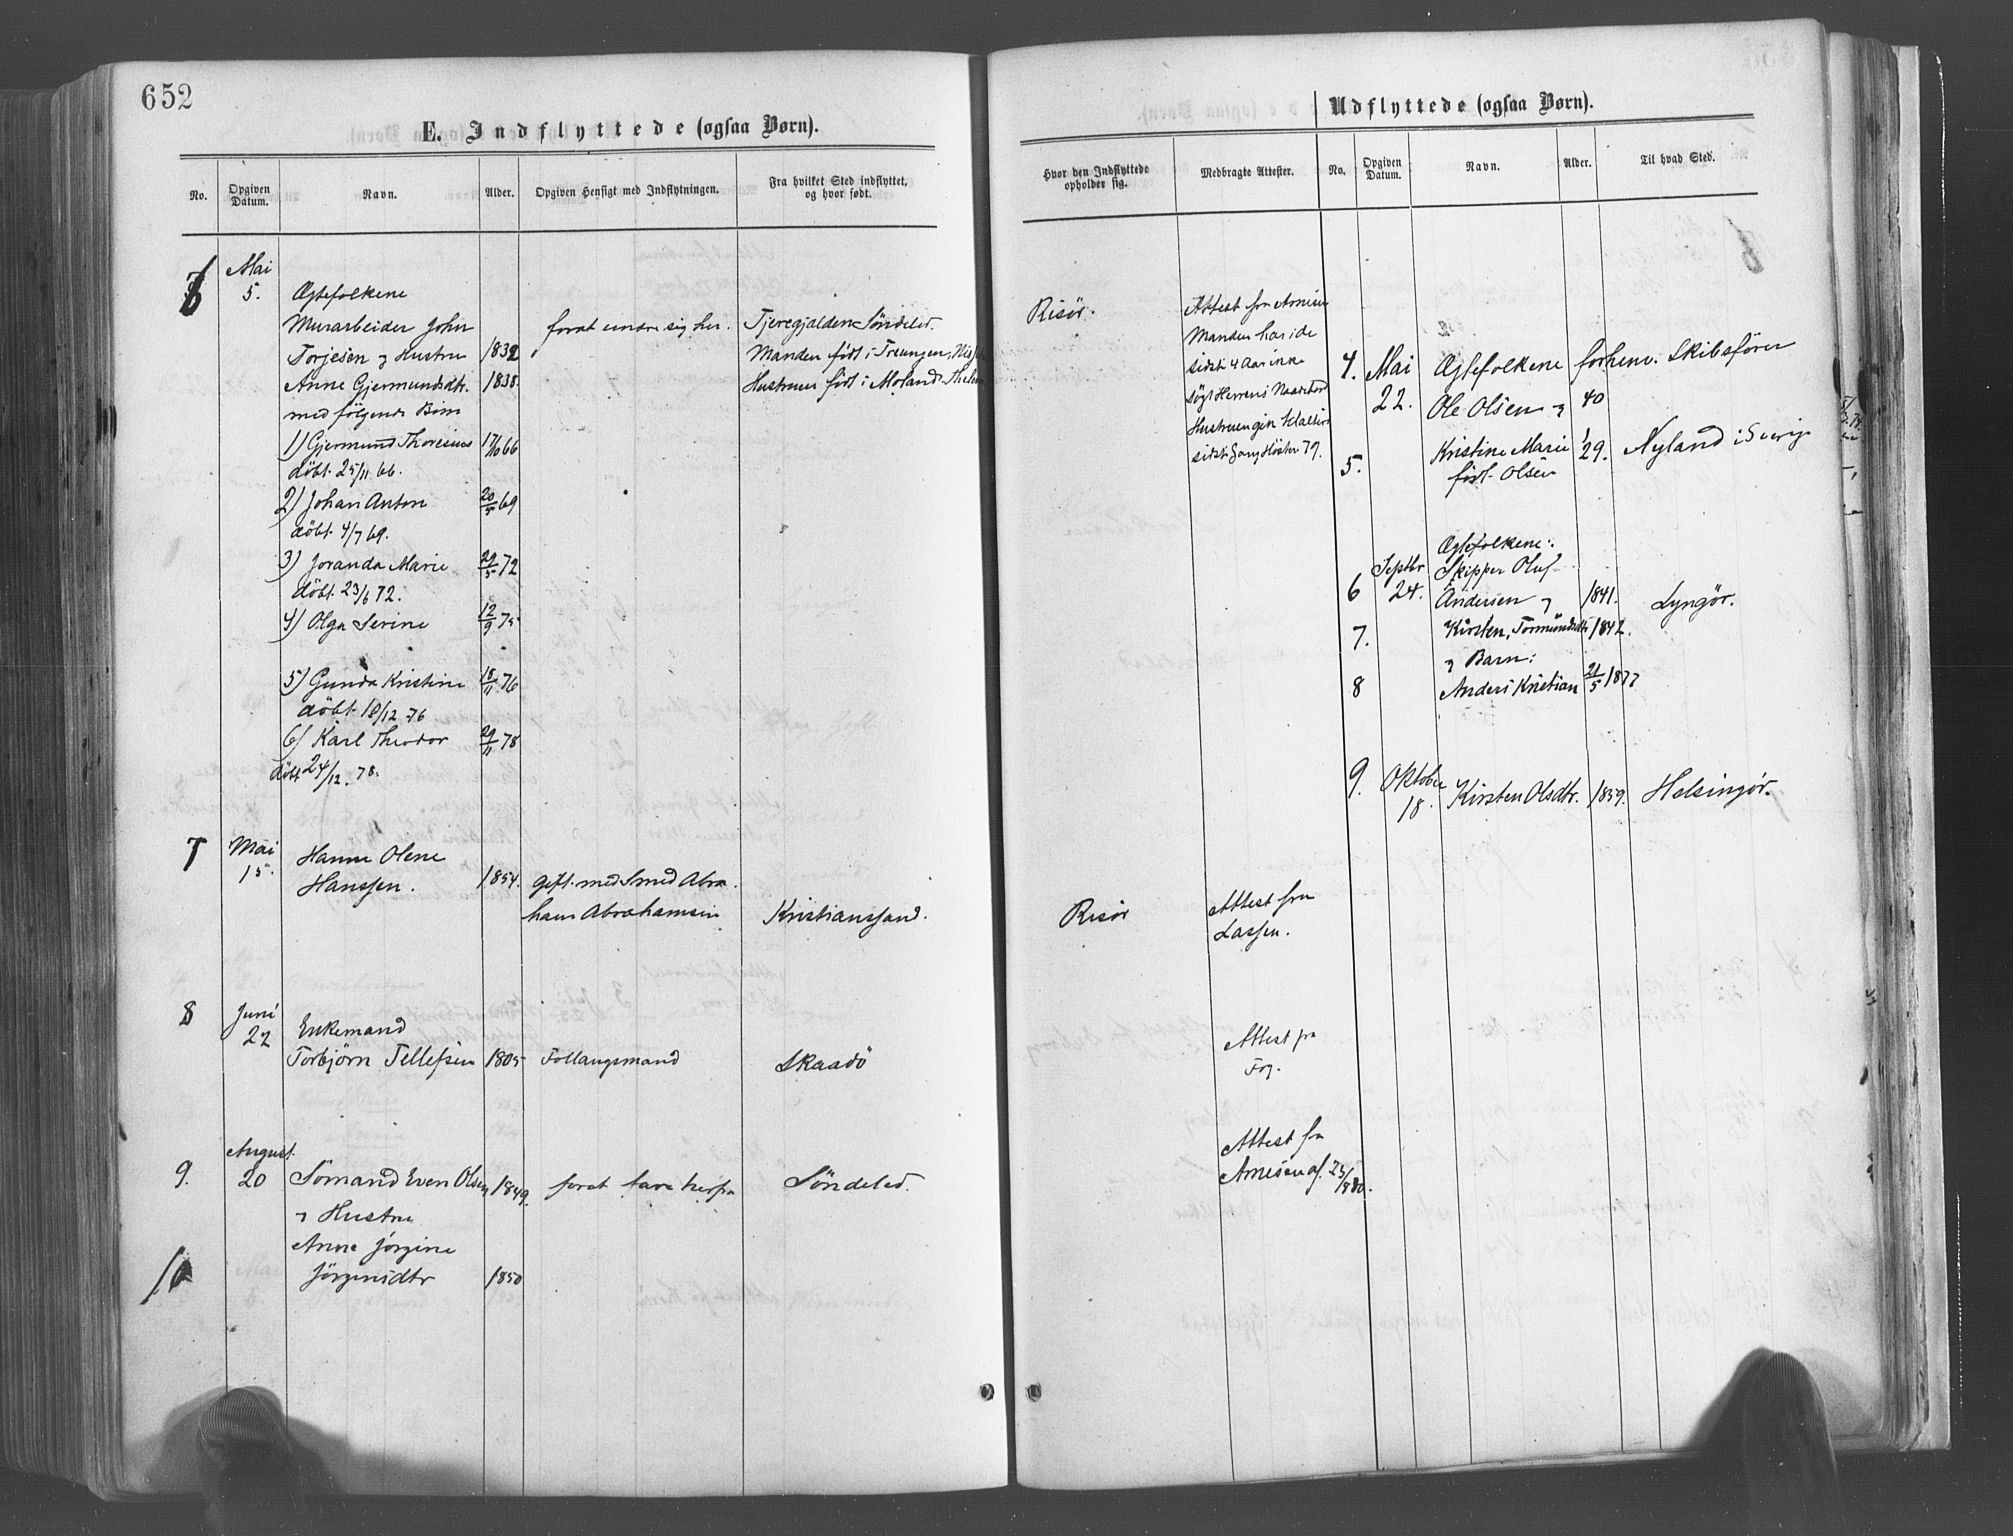 652
E. Indflyttede (ogsaa Børn).
No.
Opgiven Datum.
Navn.
Alder.
Opgiven Hensigt med Indflytningen.
Fra hvilket Sted indflyttet, og hvor født.
6
Mai
5.
Ægtefolkene
Murarbeider John
Torjesen og Hustru 1832
Anne Gjermundsdtr. 1838.
med følgende Børn
1) Gjermund Thoresius 17/10 66
döbt 25/11 66.
2) Johan Anton 20/5 69
döbt 4/7 69.
3) Joranda Marie 29/5 72
döbt 23/6 72.
4) Olga Serine 12/9 75
5) Gunda Kristine 18/11 76
döbt 18/12 76
6) Karl Theodor 29/11 78
döbt 24/12. 78.
forat ernære sig her.
Tjeregjalden Söndeled.
Manden födt i Treungen,
Hustruen födt i Moland
7
Mai
15.
Hanne Olene
Hanssen. 1854.
gift med Smed Abra
ham Abrahamsen
Kristianssand.
8
Juni
22
Enkemand
Torbjörn Tellefsen 1805
Follaugsmand
Skaadö
9.
August
20
Sömand Even Olsen 1849.
og Hustru
forat fare herfra
Söndeled.
10
Anne Jörgine
Jörgensdtr 1850
Udflyttede (ogsaa Børn).
Hvor den Indflyttede opholder sig.
Medbragte Attester.
No.
Opgiven Datum.
Navn.
Alder.
Til hvad Sted.
Risör.
Attest fra Arnesen
Manden har i de
sidste 4 Aar ikke
sögt Herrens Nadverbord
Hustruen gik til Alters
sidste Gang Hösten 79.
Risör
Attest fra
Lassen.
Attest fra
Foy.
Attest fra
Arnesen af 23/ 80.
4. Mai
22.
Ægtefolkene forhenv. Skibsförer
Ole Olsen og 40
5.
Kristine Marie 29.
födt Olsen
Nyland i Sverige
Ægtefolkene:
6 Septbr
24.
Skipper Oluf
Andersen og 1841.
Lyngör.
7.
Kirsten Tormundsdtr 1842.
og Barn:
8
Anders Kristian 21/5 1877
9. Oktober
18.
Kirsten Olsdtr. 1859.
Helsingör.